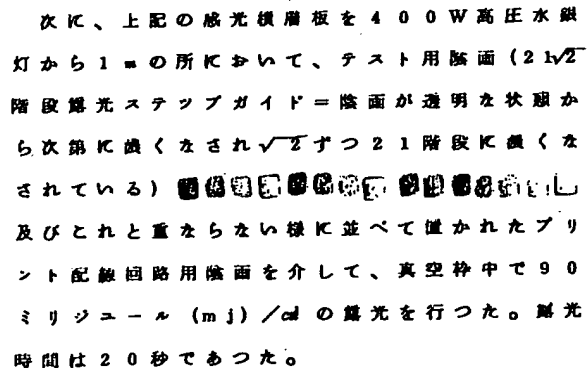 次に、上記の感光積層板を400W高圧水銀
灯から1mの所において、テスト用陰画(21√2
階段露光ステップガイド=陰画が透明な状態か
ら次第に濃くなされ√2ずつ21階段に濃くな
されている)
及びこれと重ならない様に並べて置かれたプリ
ント配線回路用陰画を介して、真空枠中で90
ミリジュール(mj)/cm²の露光を行つた。露光
時間は20秒であつた。